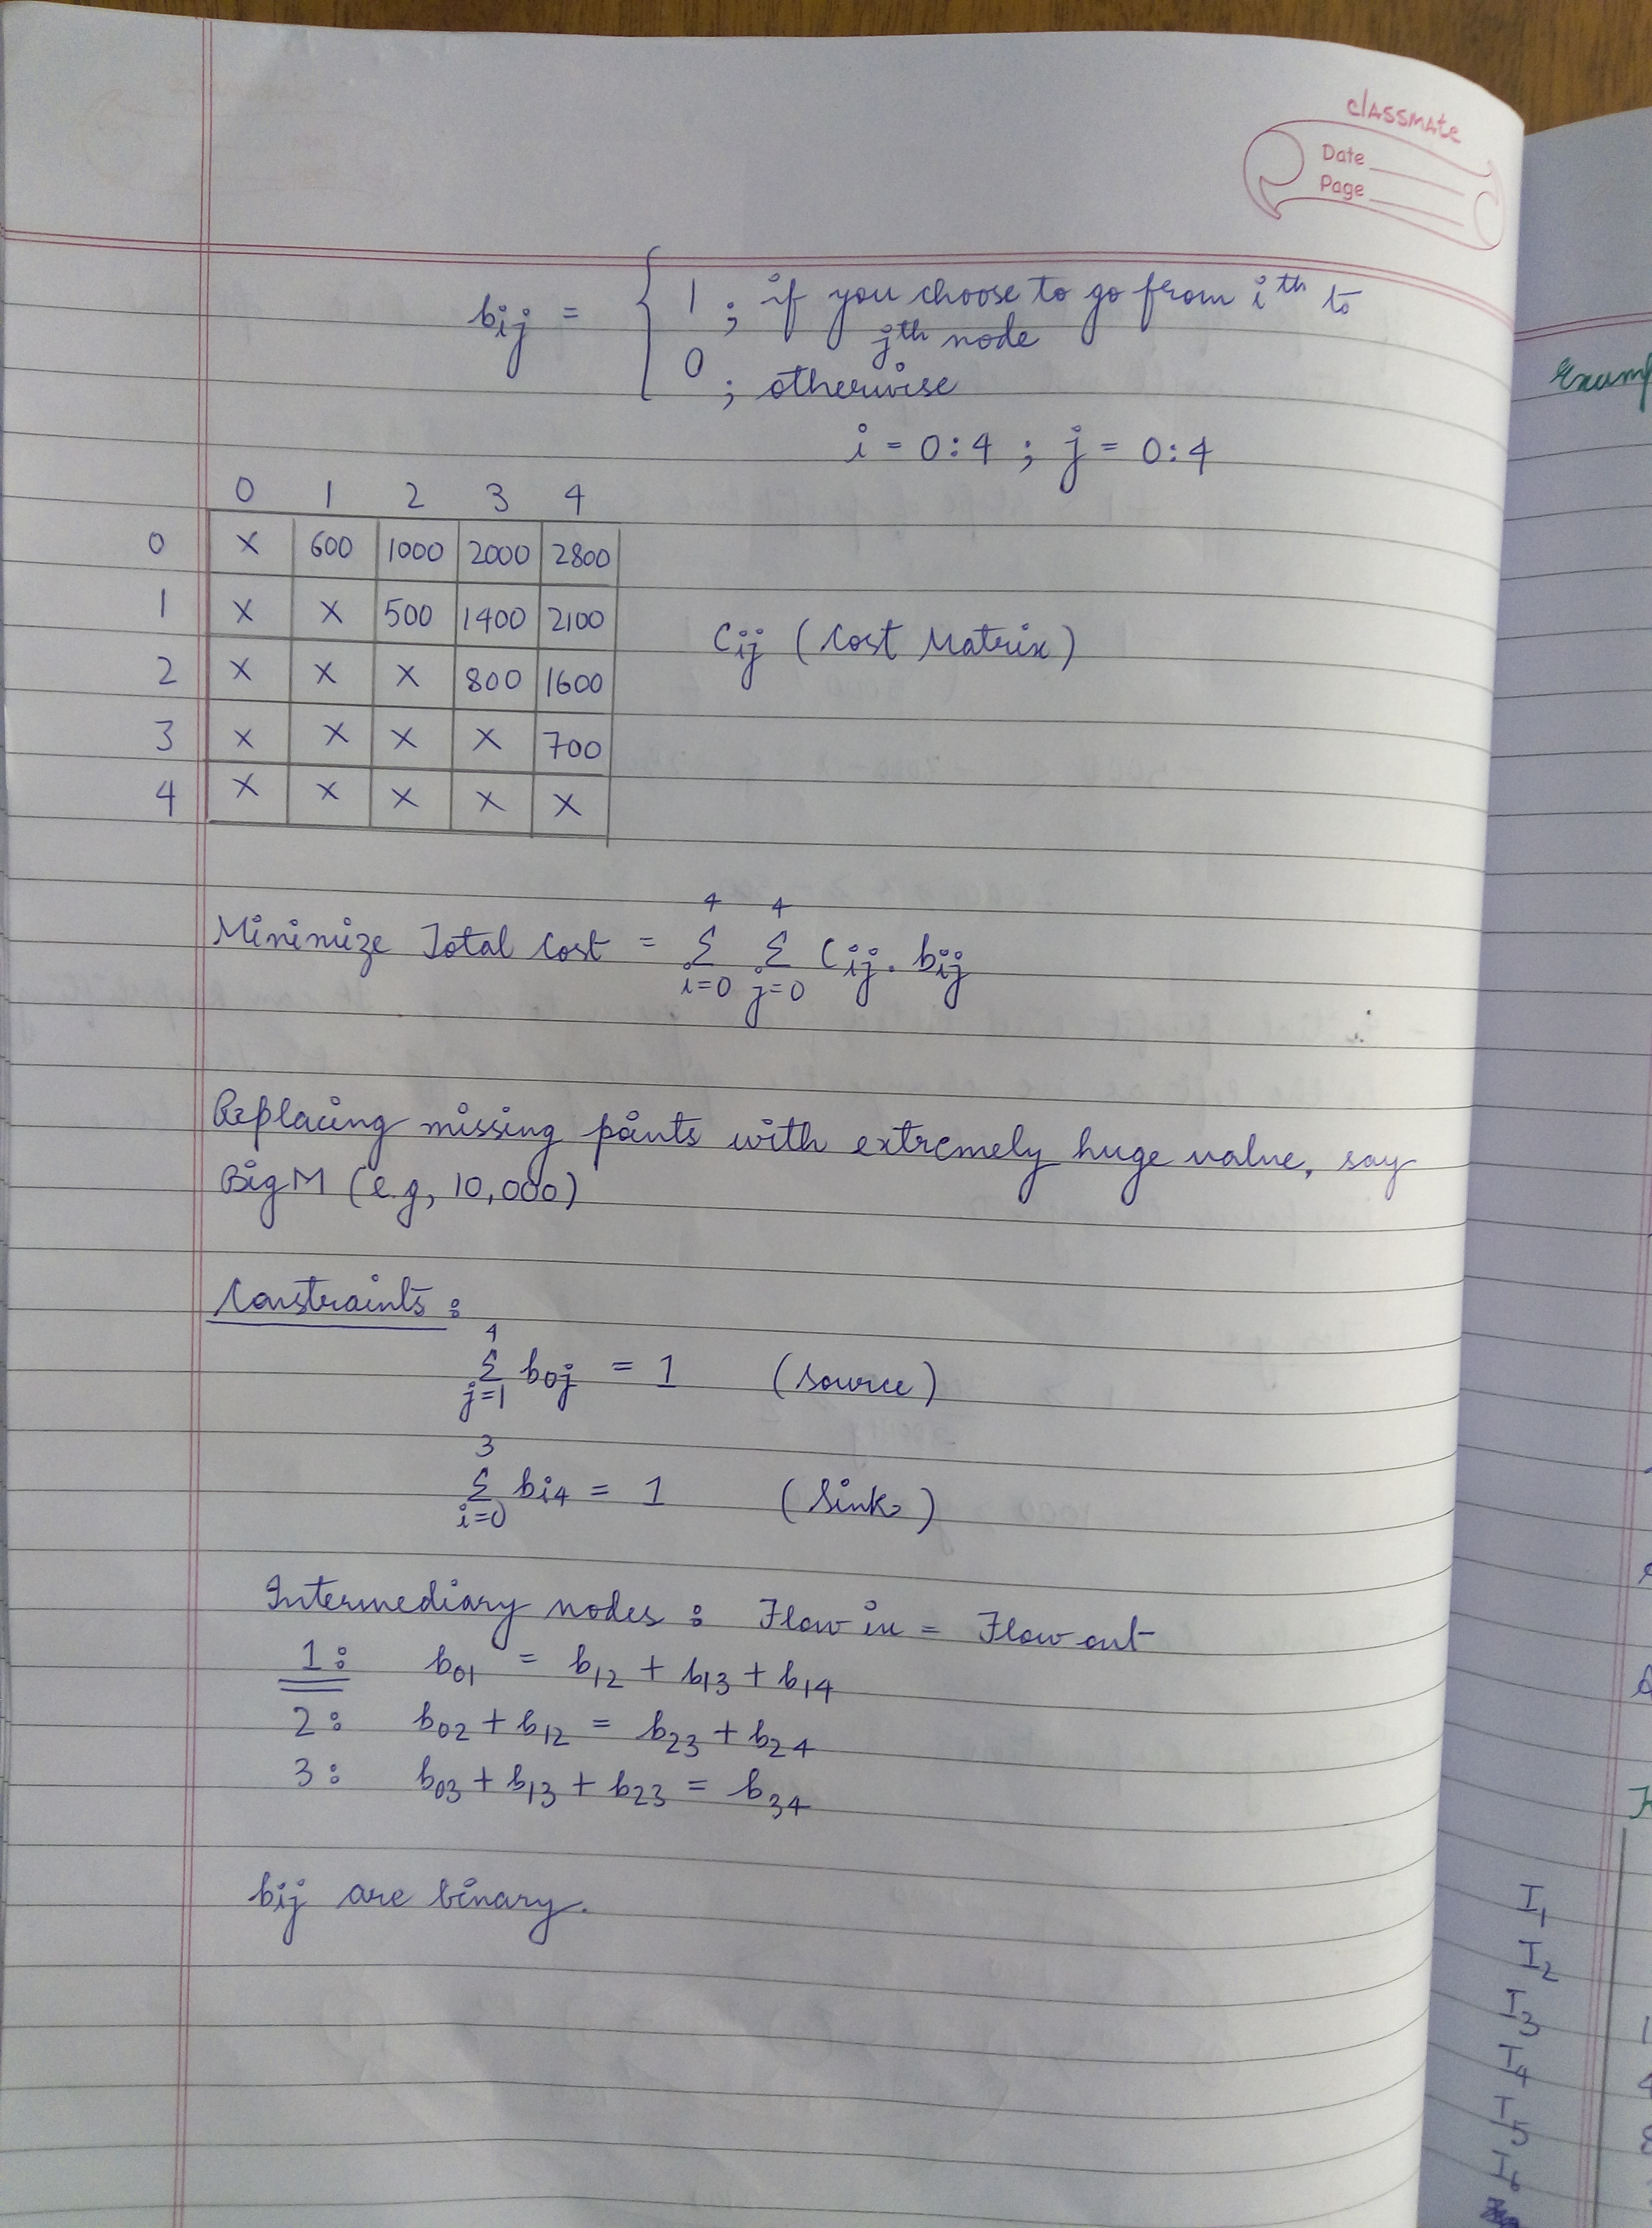 classmate
Date
Page
bij = { 1 ; if you choose to go from i^th to
j^th node
0 ; otherwise
i = 0:4 ; j = 0:4
0 1 2 3 4
0 × 600 1000 2000 2800
1 × × 500 1400 2100
2 × × × 800 1600
3 × × × × 700
4 × × × × ×
Cij (Cost Matrix)
Minimize Total Cost = Σ_{i=0}^{4} Σ_{j=0}^{4} Cij . bij
Replacing missing points with extremely huge value, say
Big M (e.g, 10,000)
Constraints :
Σ_{j=1}^{4} b0j = 1 (Source)
Σ_{i=0}^{3} bi4 = 1 (Sink)
Intermediary nodes : Flow in = Flow out
1: b01 = b12 + b13 + b14
2: b02 + b12 = b23 + b24
3: b03 + b13 + b23 = b34
bij are binary.
I1
I2
I3
I4
I5
I6